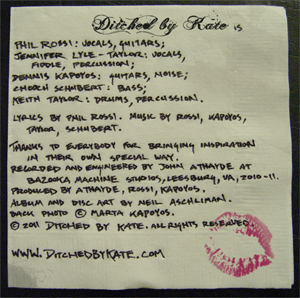 Ditched by Kate is
Phil Rossi: vocals, guitars;
Jennifer Lyle-Taylor: vocals,
fiddle, percussion;
Dennis Kapoyos: guitars, noise;
Chooch Schubert: bass;
Keith Taylor: drums, percussion.
Lyrics by Phil Rossi. Music by Rossi, Kapoyos,
Taylor, Schubert.
Thanks to everybody for bringing inspiration
in their own special way.
Recorded and engineered by John Athayde at
Bazooka Machine Studios, Leesburg, VA, 2010-11.
Produced by Athayde, Rossi, Kapoyos.
Album and disc art by Neil Aschliman.
Back photo © Marta Kapoyos.
© 2011 Ditched by Kate. All rights reserved.
www.DitchedByKate.com